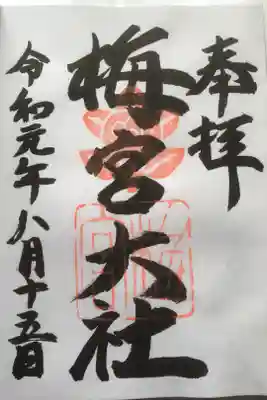 奉拝
梅宮大社
令和元年八月十五日